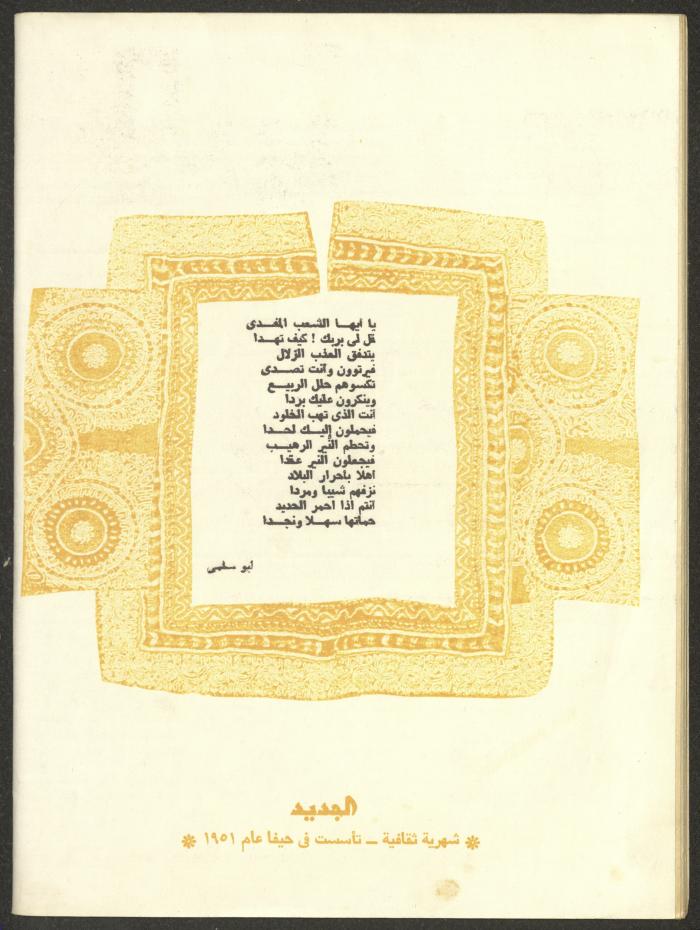 يا أيهـا الشعب المفـدى
قل لى بربك ! كيف تهـدا
يتدفق العذب الزلال
فيرتوون وأنت تصـدى
تكسوهم حلل الربيـع
وينكرون عليك بردا
أنت الذى تهب الخلود
فيحملون إليـك لحـدا
وتحطم النير الرهيـب
فيجعلون النير عقدا
أهلا بأحرار البلاد
نزفهم شيبا ومردا
أنتم اذا احمر الحديد
حماتها سهـلا ونجـدا
أبو سلمى
الجديد
* شهرية ثقافية ــ تأسست فى حيفا عام ١٩٥١ *